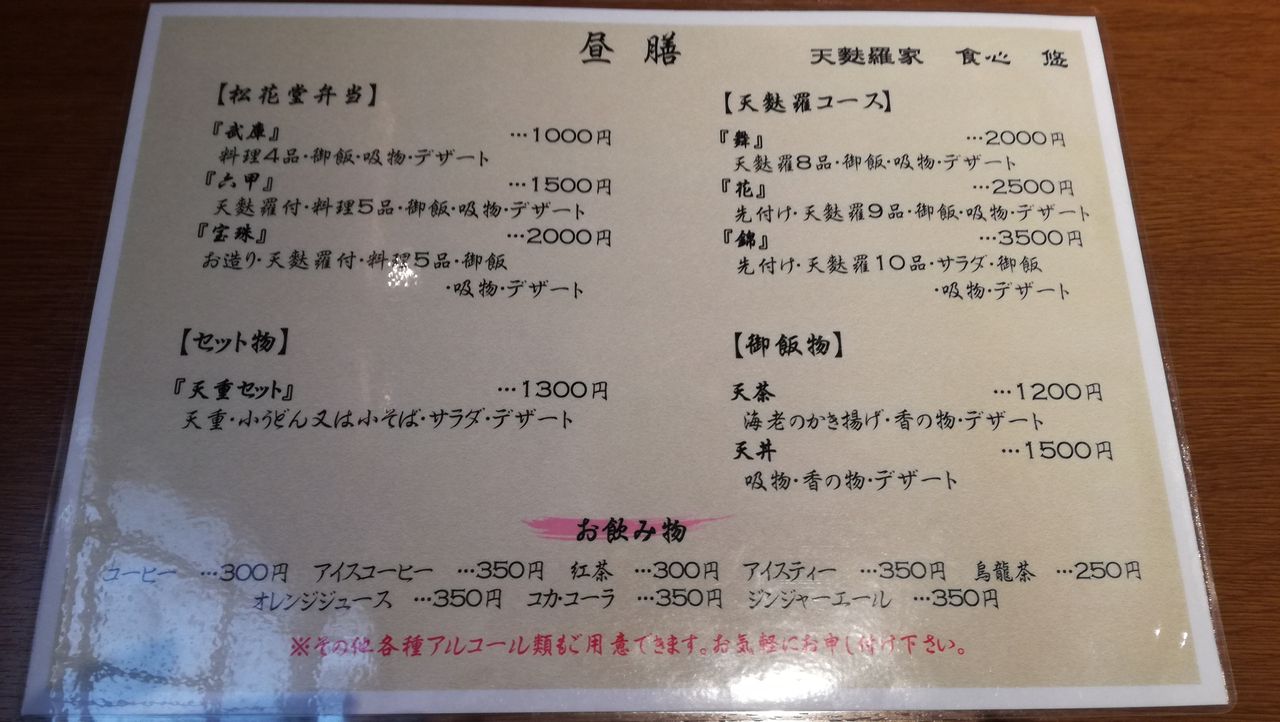 昼 膳
天麩羅家 食心 悠
【松花堂弁当】
『武庫』 …1000円
料理4品・御飯・吸物・デザート
『六甲』 …1500円
天麩羅付・料理5品・御飯・吸物・デザート
『宝珠』 …2000円
お造り・天麩羅付・料理5品・御飯
・吸物・デザート
【天麩羅コース】
『舞』 …2000円
天麩羅8品・御飯・吸物・デザート
『花』 …2500円
先付け・天麩羅9品・御飯・吸物・デザート
『錦』 …3500円
先付け・天麩羅10品・サラダ・御飯
・吸物・デザート
【セット物】
『天重セット』 …1300円
天重・小うどん又は小そば・サラダ・デザート
【御飯物】
天茶 …1200円
海老のかき揚げ・香の物・デザート
天丼 …1500円
吸物・香の物・デザート
お飲み物
コーヒー …300円 アイスコーヒー …350円 紅茶 …300円 アイスティー …350円 烏龍茶 …250円
オレンジジュース …350円 コカ・コーラ …350円 ジンジャーエール …350円
※その他各種アルコール類もご用意できます。お気軽にお申し付け下さい。